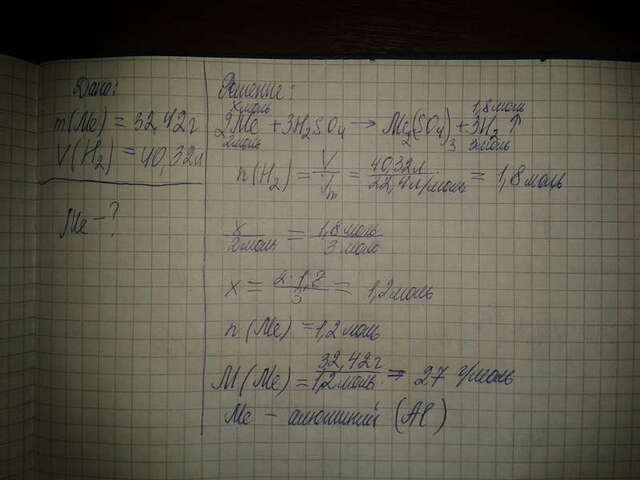 Дано:
m(Me) = 32,42г
V(H₂) = 40,32л
Me - ?
Решение:
xмоль 1,8моль
2Me + 3H₂SO₄ → Me₂(SO₄)₃ + 3H₂ ↑
2моль 3моль
n(H₂) = V/Vm = 40,32л/22,4л/моль = 1,8моль
x/2моль = 1,8моль/3моль
x = 2·1,8/3 = 1,2моль
n(Me) = 1,2моль
M(Me) = 32,42г/1,2моль = 27 г/моль
Me - алюминий (Al)